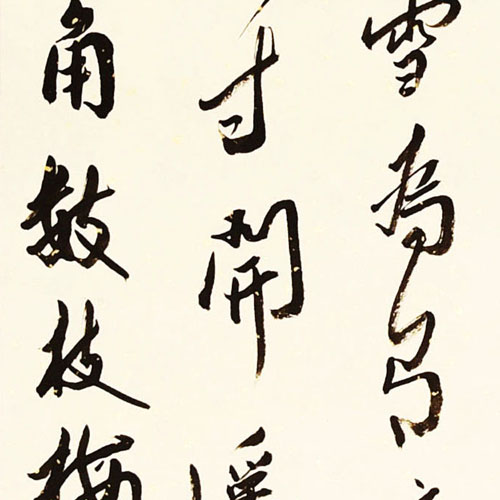 雪為有
開遥
角數枝梅